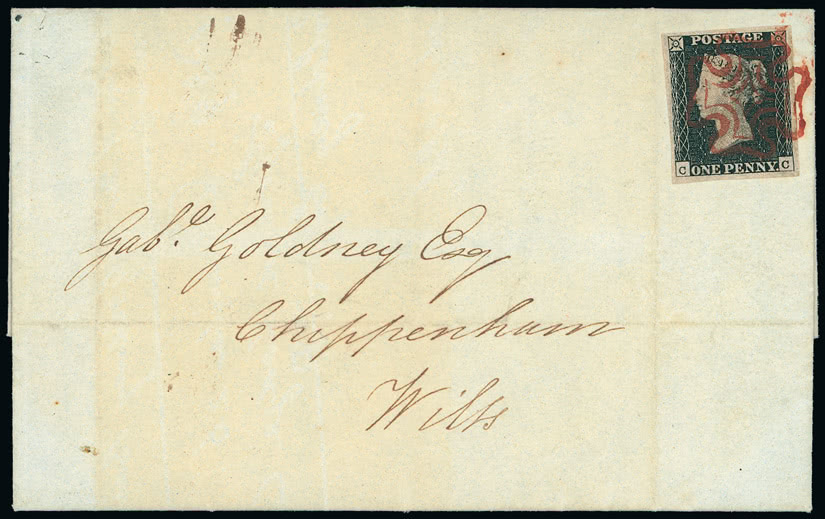 POSTAGE
C ONE PENNY. C
Gab.l Goldney Esq
Chippenham
Wilts